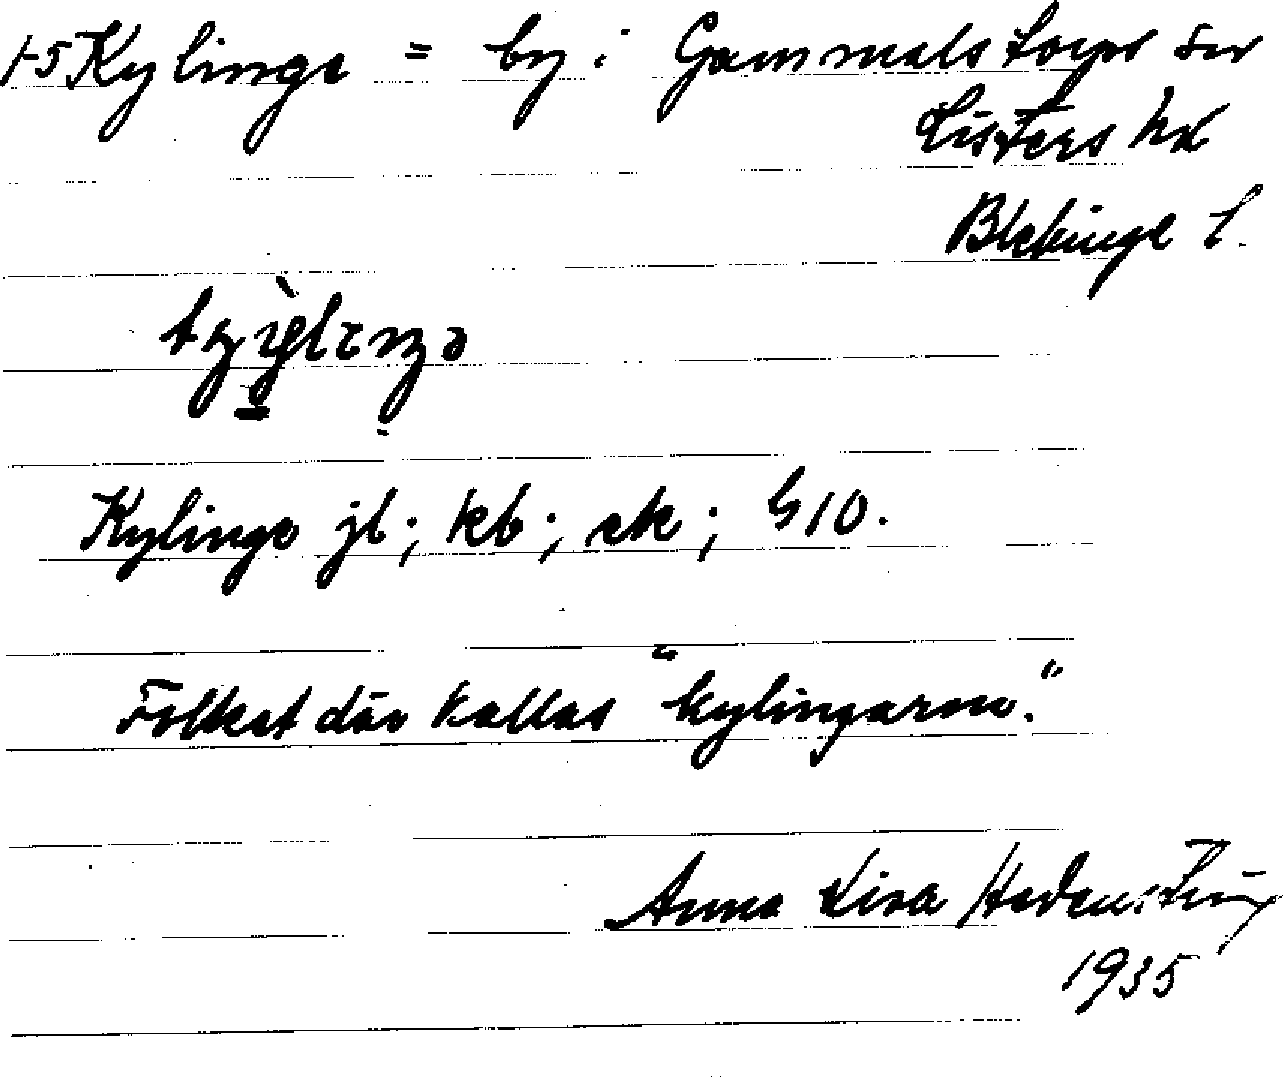 1-5 Kylinge = by i Gammalstorps sn
Listers hd
Blekinge l.
Kylinge jb; kb; ek; G10.
Folket där kallas "kylingarna."
Anna Lisa
1935